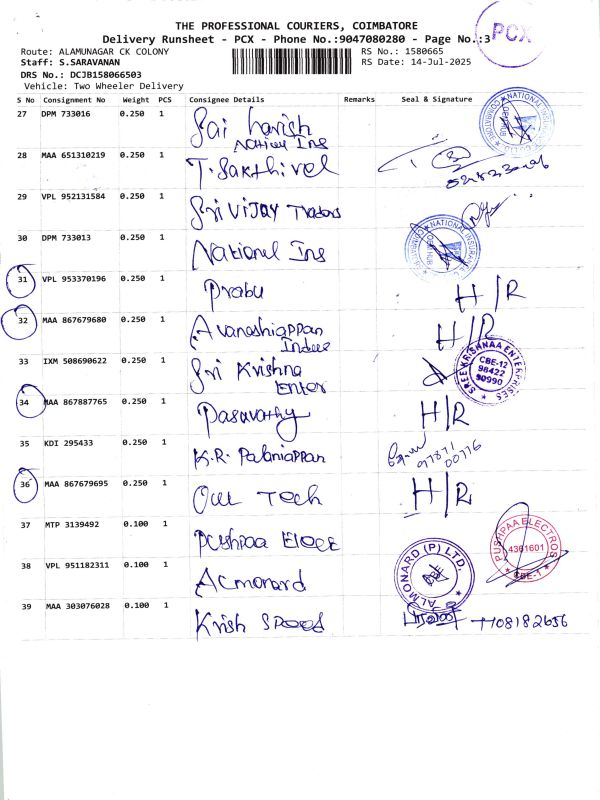 THE PROFESSIONAL COURIERS, COIMBATORE
Delivery Runsheet - PCX - Phone No.:9047080280 - Page No.:3
PCX
Route: ALAMUNAGAR CK COLONY
RS No.: 1580665
Staff: S.SARAVANAN
RS Date: 14-Jul-2025
DRS No.: DCJB158066503
Vehicle: Two Wheeler Delivery
S No Consignment No Weight PCS Consignee Details Remarks Seal & Signature
27 DPM 733016 0.250 1 Sai Harish
Nationl Ins
28 MAA 651310219 0.250 1 T. Sakthivel
29 VPL 952131584 0.250 1 Sri Vijay Traders
30 DPM 733013 0.250 1 National Ins
31 VPL 953370196 0.250 1 Prabu H/R
32 MAA 867679680 0.250 1 Avanashiappan H/R
33 IXM 508690622 0.250 1 Sri Krishna
Enter
SREE KRISHNAA ENTERPRISES
CBE-12
98422
90990
34 MAA 867887765 0.250 1 Pasavathy H/R
35 KDI 295433 0.250 1 K.R. Palaniappan 97871
00776
36 MAA 867679695 0.250 1 Our Tech H/R
37 MTP 3139492 0.100 1 Pushpaa Eloce
PUSHPAA ELECTROS
4361601
CBE-1
38 VPL 951182311 0.100 1 Acmonard
ALMONARD (P) LTD.
CBE
39 MAA 303076028 0.100 1 Krish Speed